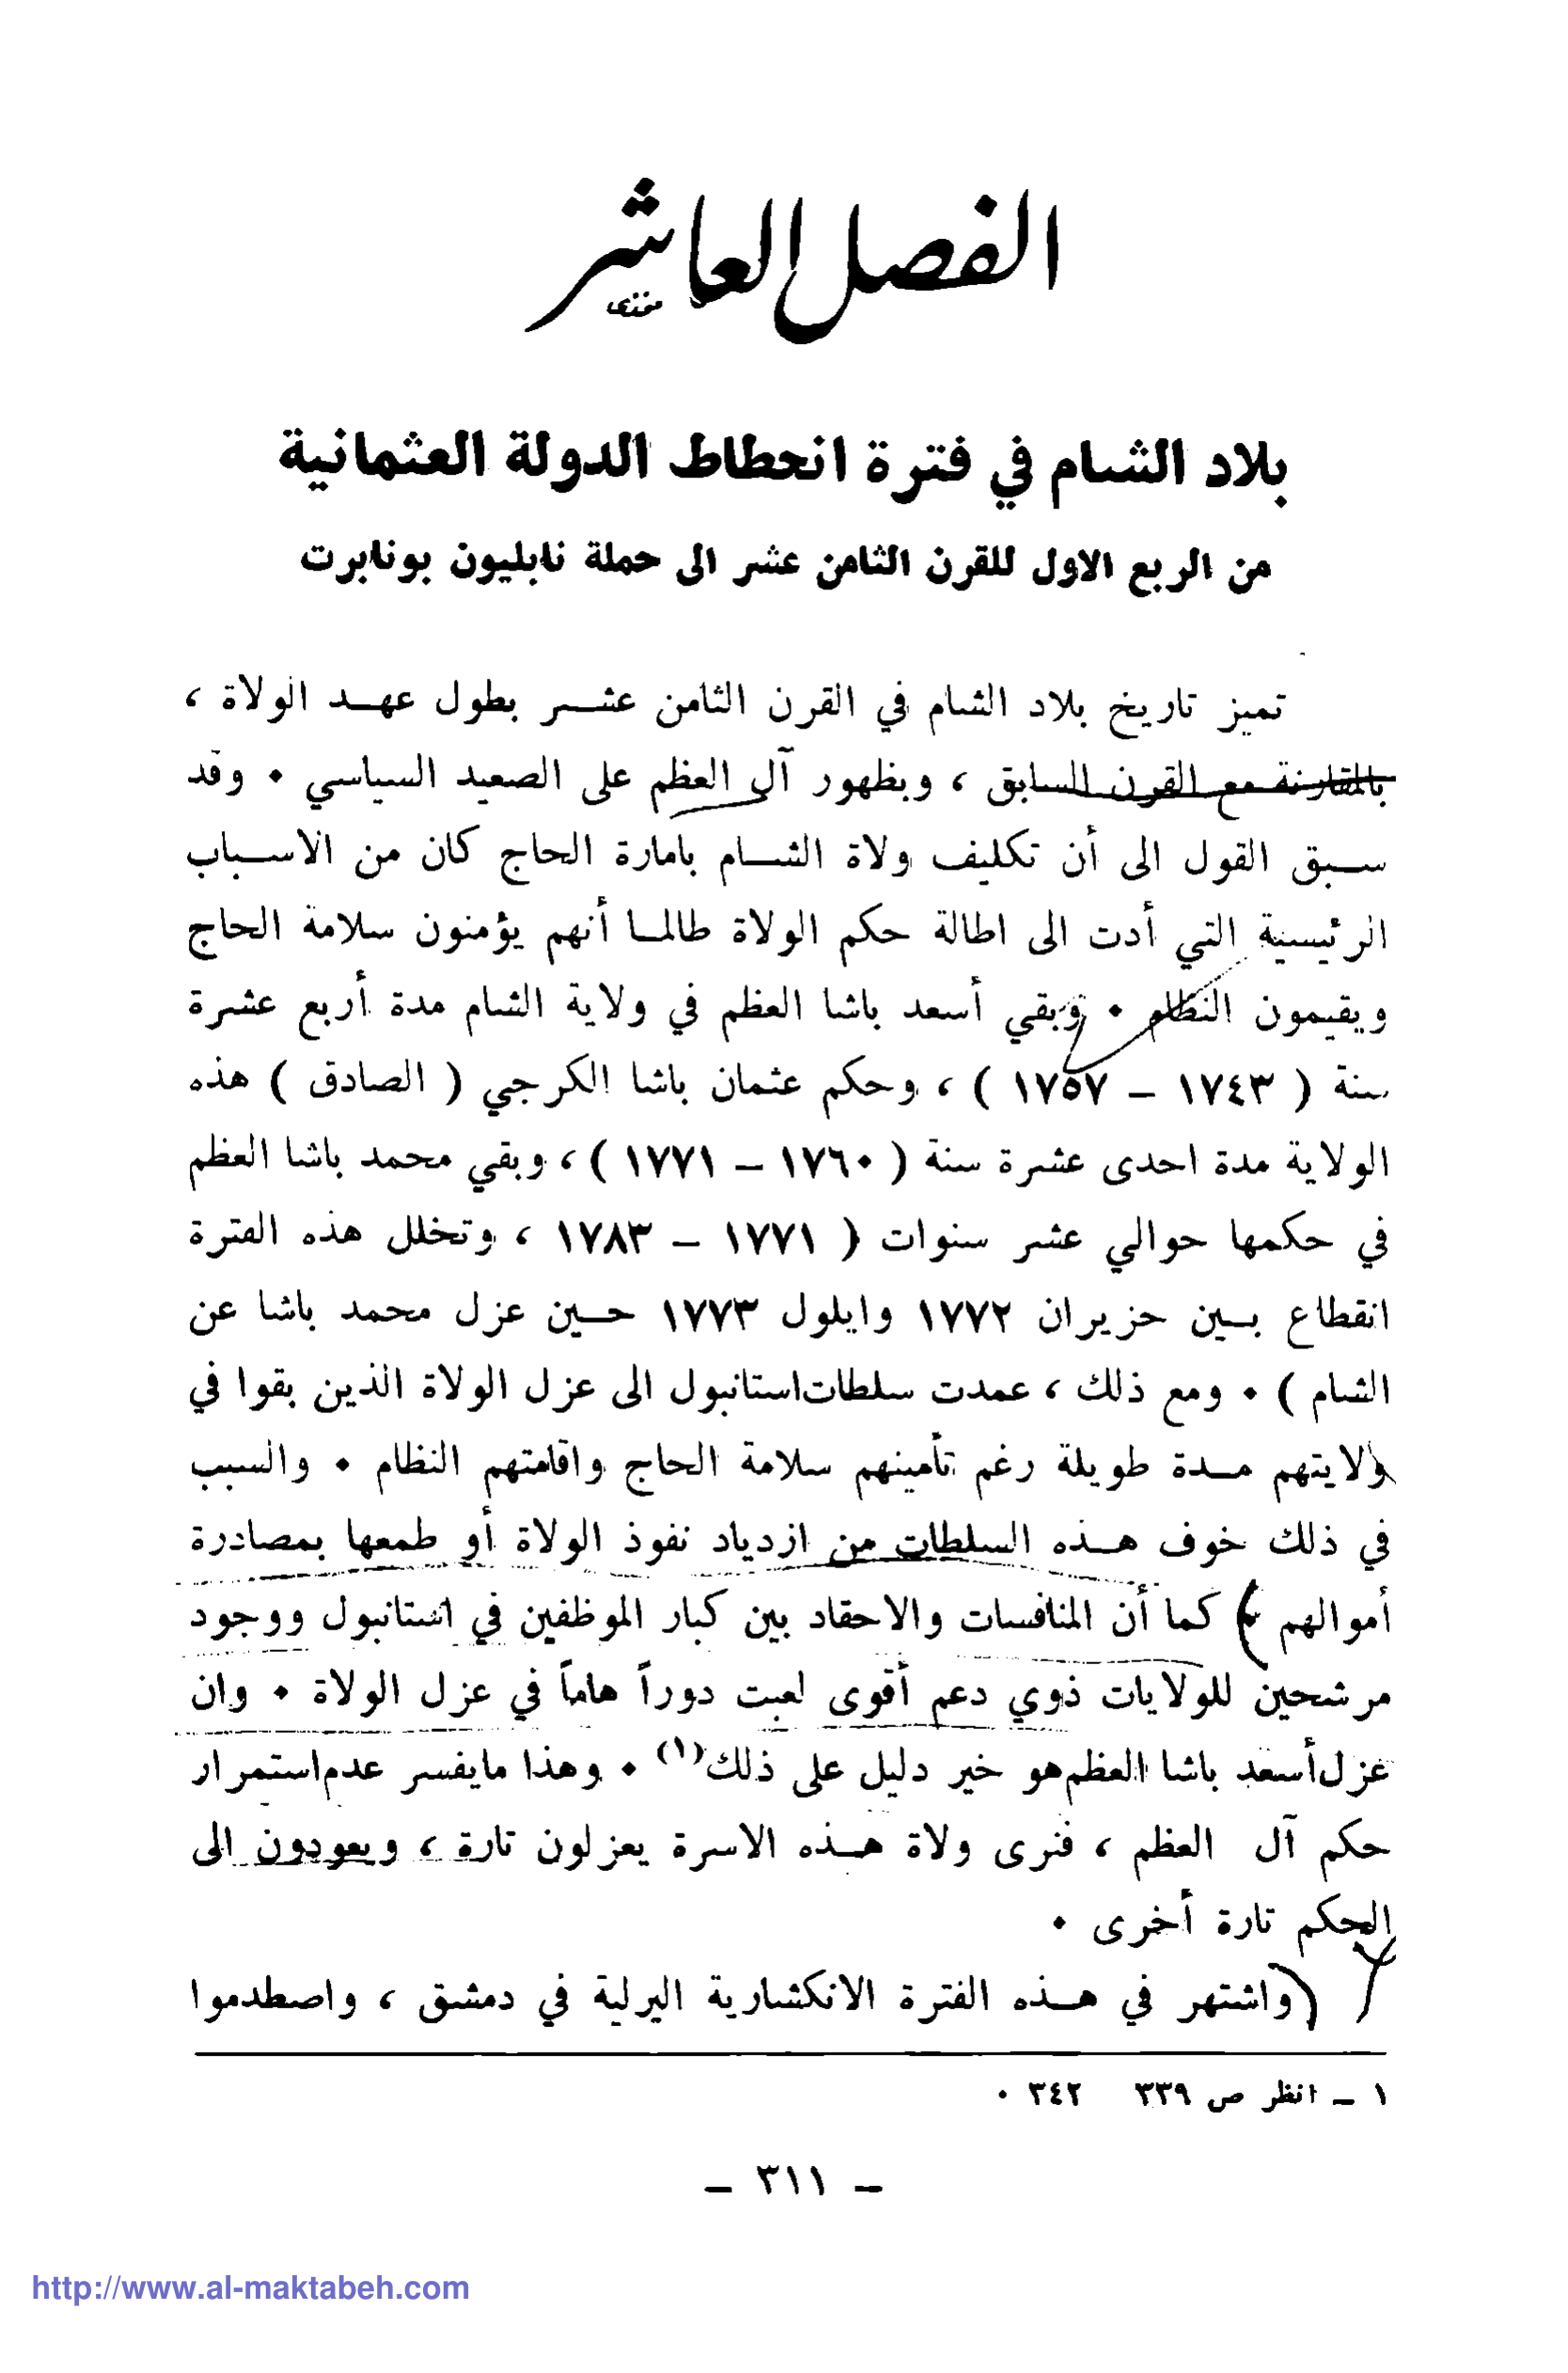 الفصل العاشر
بلاد الشام في فترة انحطاط الدولة العثمانية
من الربع الاول للقرن الثامن عشر الى حملة نابليون بونابرت
تميز تاريخ بلاد الشام في القرن الثامن عشر بطول عهد الولاة ،
بالمقارنة مع القرن السابق ، وبظهور آل العظم على الصعيد السياسي ٠ وقد
سبق القول الى أن تكليف ولاة الشام بامارة الحاج كان من الاسباب
الرئيسية التي أدت الى اطالة حكم الولاة طالما أنهم يؤمنون سلامة الحاج
ويقيمون النظام ٠ وبقي أسعد باشا العظم في ولاية الشام مدة أربع عشرة
سنة ( ١٧٤٣ – ١٧٥٧ ) ، وحكم عثمان باشا الكرجي ( الصادق ) هذه
الولاية مدة احدى عشرة سنة ( ١٧٦٠ – ١٧٧١ ) ، وبقي محمد باشا العظم
في حكمها حوالي عشر سنوات ( ١٧٧١ – ١٧٨٣ ، وتخلل هذه الفترة
انقطاع بين حزيران ١٧٧٢ وايلول ١٧٧٣ حين عزل محمد باشا عن
الشام ) ٠ ومع ذلك ، عمدت سلطات استانبول الى عزل الولاة الذين بقوا في
ولايتهم مدة طويلة رغم تأمينهم سلامة الحاج واقامتهم النظام ٠ والسبب
في ذلك خوف هذه السلطات من ازدياد نفوذ الولاة أو طمعها بمصادرة
أموالهم ٠ كما أن المنافسات والاحقاد بين كبار الموظفين في استانبول ووجود
مرشحين للولايات ذوي دعم أقوى لعبت دوراً هاماً في عزل الولاة ٠ وان
عزل أسعد باشا العظم هو خير دليل على ذلك(١) ٠ وهذا مايفسر عدم استمرار
حكم آل العظم ، فنرى ولاة هذه الاسرة يعزلون تارة ، ويعودون الى
الحكم تارة أخرى ٠
واشتهر في هذه الفترة الانكشارية اليرلية في دمشق ، واصطدموا
١ – انظر ص ٣٣٩ ٣٤٢ ٠
– ٣١١ –
http://www.al-maktabeh.com